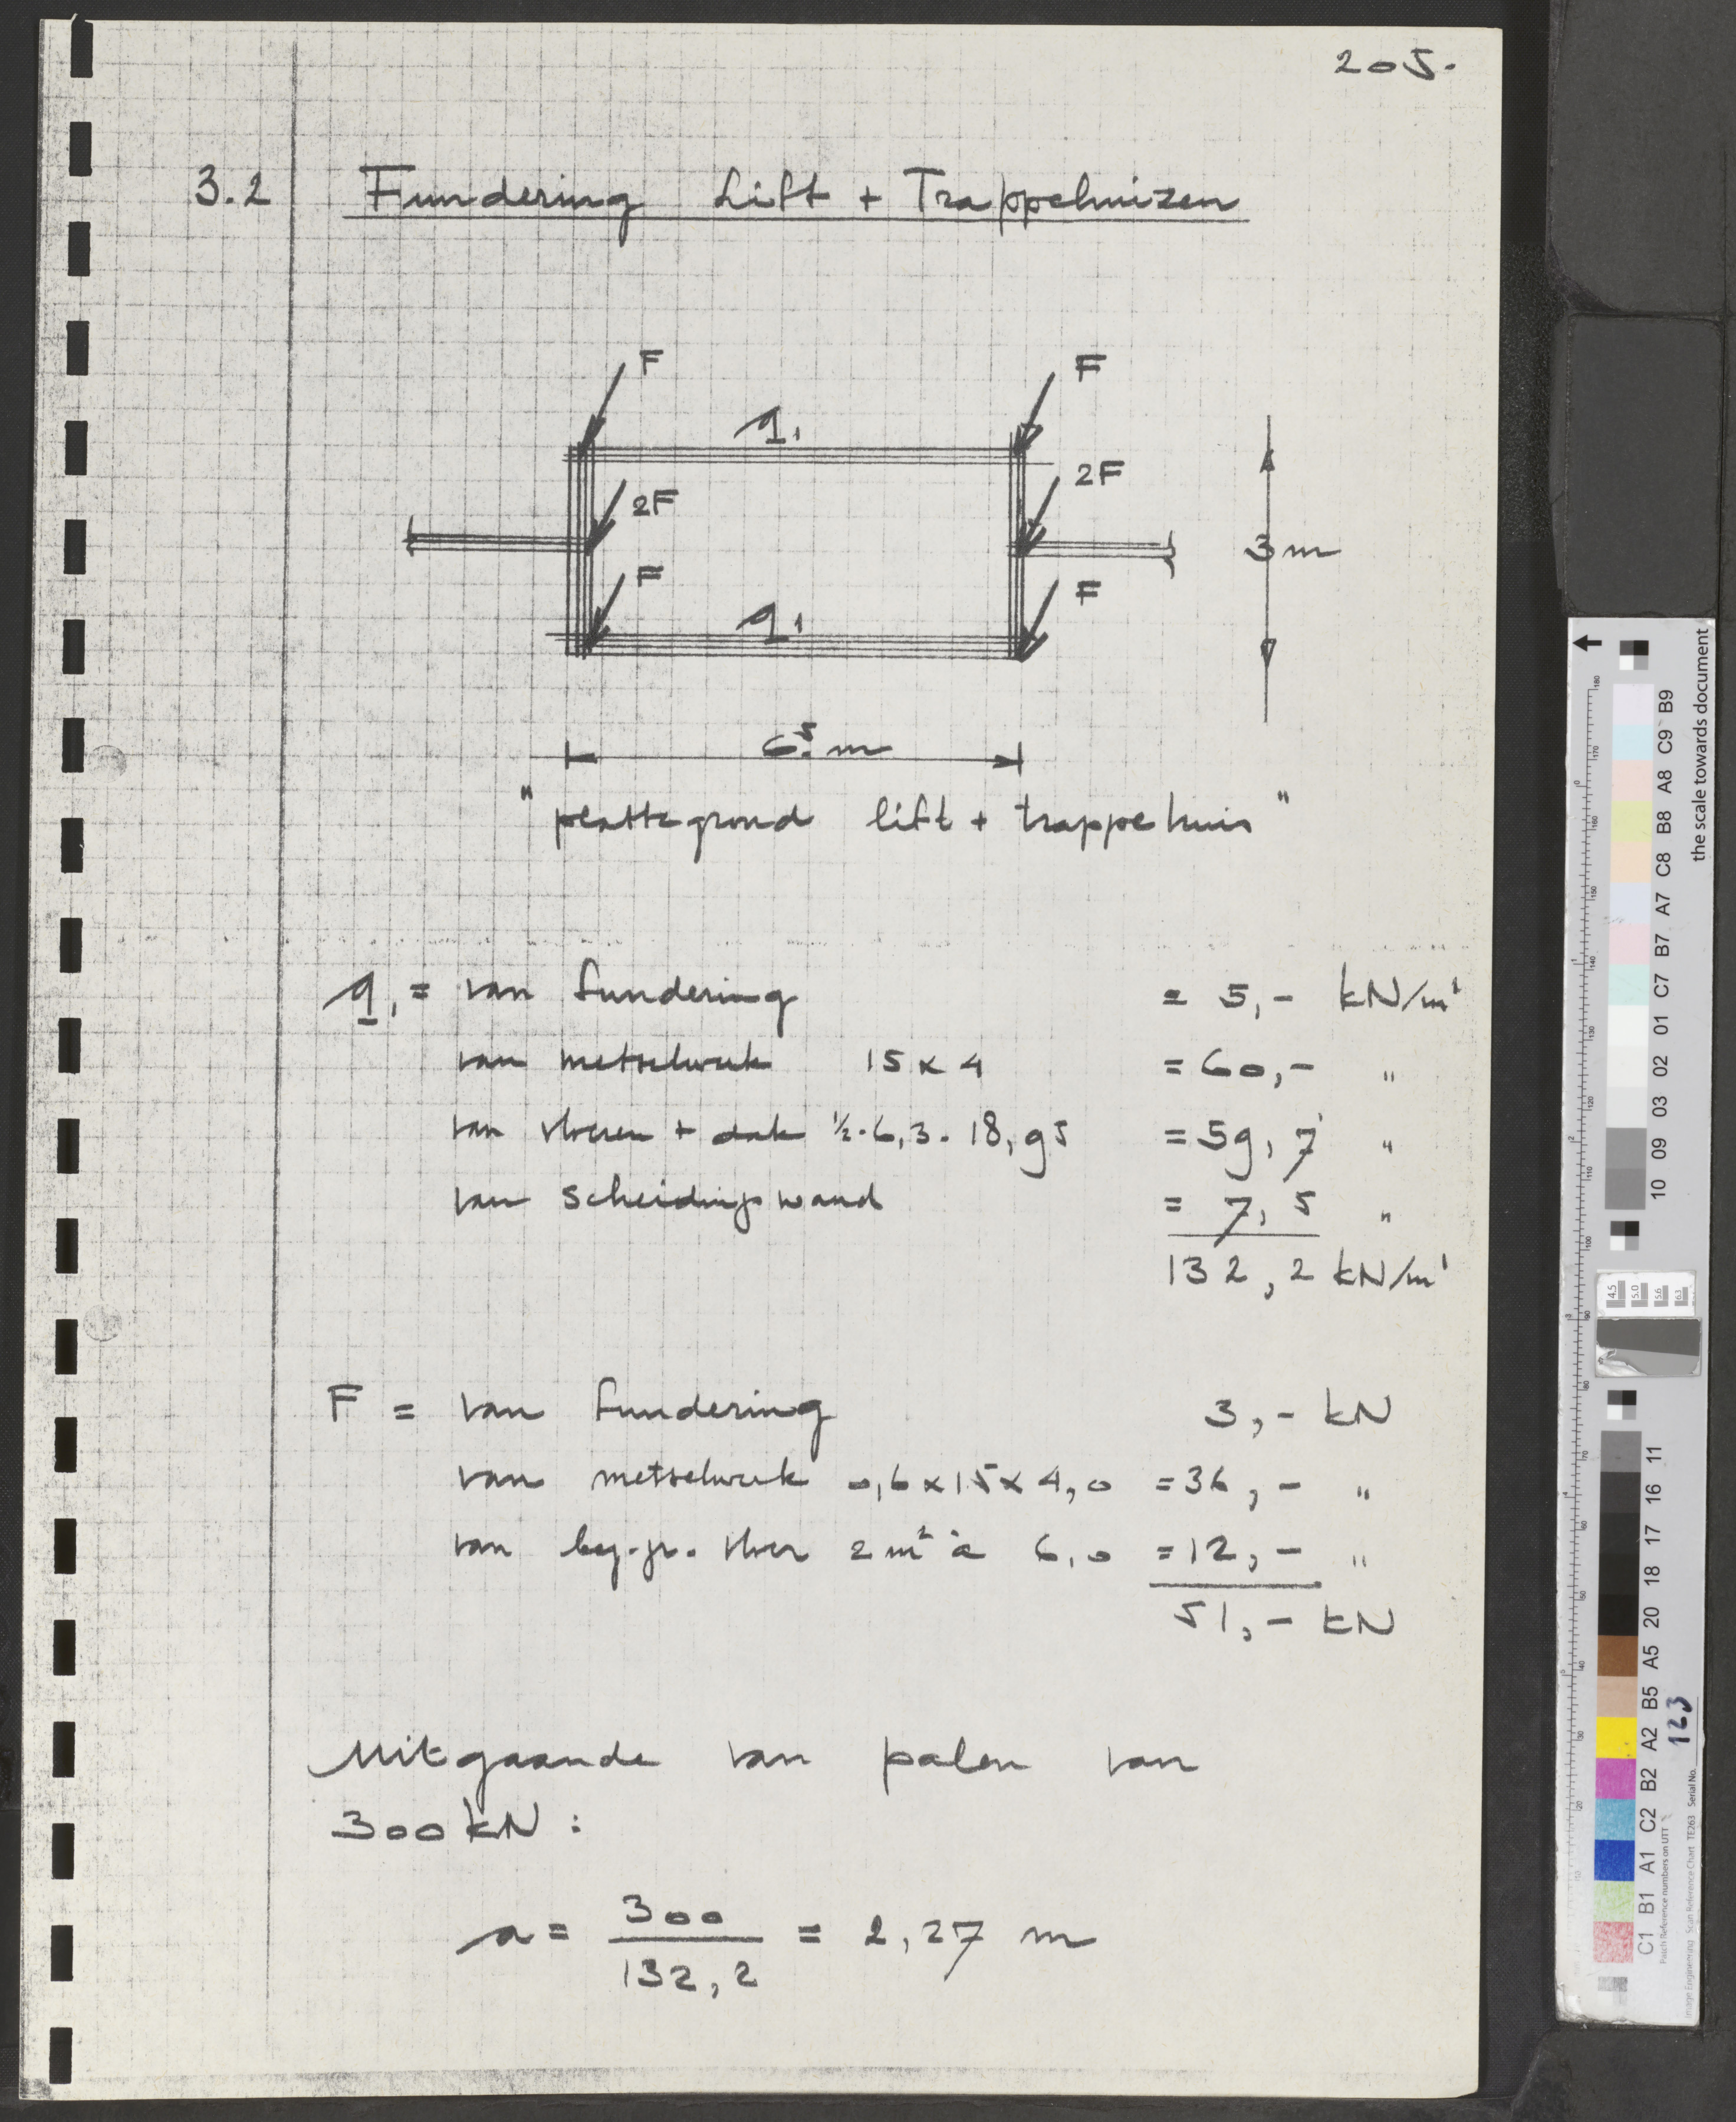 205.
3.2 Fundering Lift + Trappehuizen
F F
q₁
2F 2F
3 m
F F
q₁
6⁵ m
"plattegrond lift + trappehuis"
q₁ = van fundering = 5,- kN/m¹
van metselwerk 15 x 4 = 60,- "
van vloeren + dak ½. 6,3. 18,95 = 59,7 "
van scheidingswand = 7,5 "
132,2 kN/m¹
F = van fundering 3,- kN
van metselwerk 0,6 x 15 x 4,0 = 36,- "
van beg.gr. vloer 2 m² à 6,0 = 12,- "
51,- kN
Uitgaande van palen van
300 kN :
a = 300 / 132,2 = 2,27 m
the scale towards document
C1 B1 A1 C2 B2 A2 B5 A5 20 18 17 16 11
10 09 03 02 01 C7 B7 A7 C8 B8 A8 C9 B9
Patch Reference numbers on UTT
Image Engineering Scan Reference Chart TE263 Serial No. 123